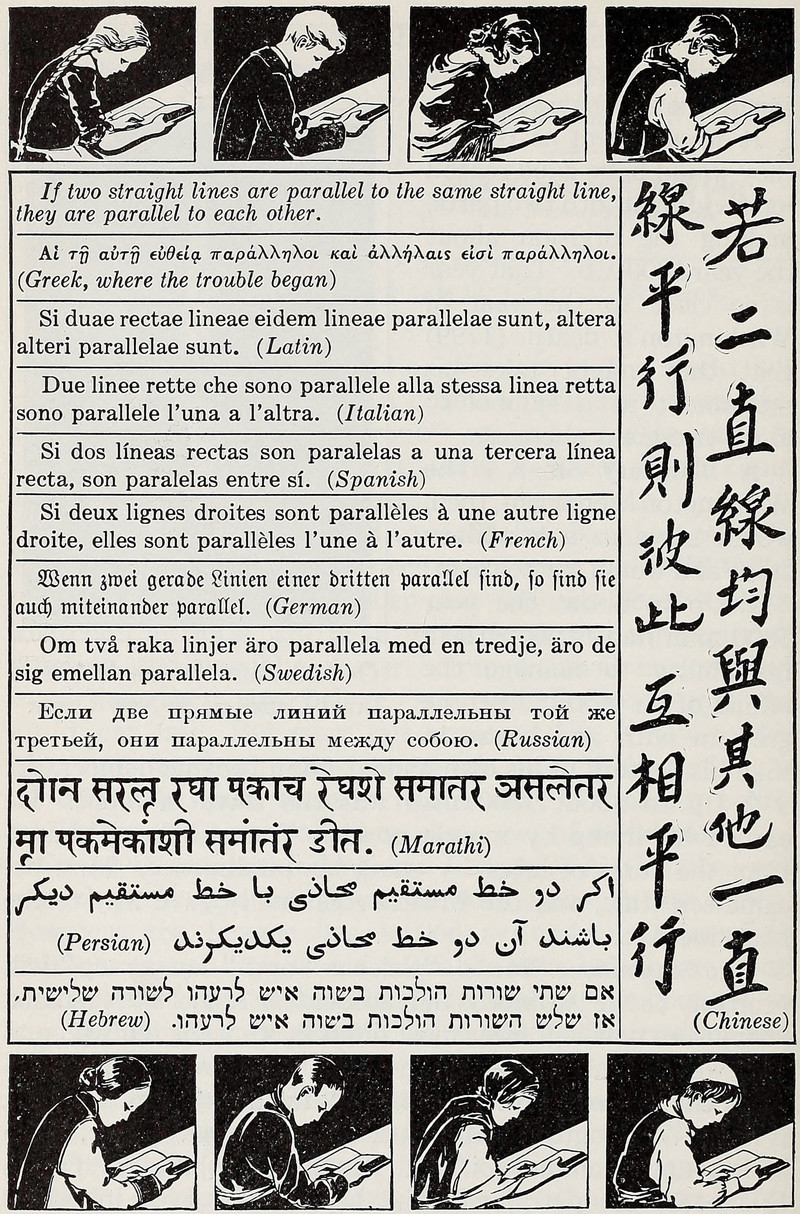 If two straight lines are parallel to the same straight line,
they are parallel to each other.
Αἱ τῇ αὐτῇ εὐθείᾳ παράλληλοι καὶ ἀλλήλαις εἰσὶ παράλληλοι.
(Greek, where the trouble began)
Si duae rectae lineae eidem lineae parallelae sunt, altera
alteri parallelae sunt. (Latin)
Due linee rette che sono parallele alla stessa linea retta
sono parallele l'una a l'altra. (Italian)
Si dos líneas rectas son paralelas a una tercera línea
recta, son paralelas entre sí. (Spanish)
Si deux lignes droites sont parallèles à une autre ligne
droite, elles sont parallèles l'une à l'autre. (French)
Wenn zwei gerade Linien einer dritten parallel sind, so sind sie
auch miteinander parallel. (German)
Om två raka linjer äro parallela med en tredje, äro de
sig emellan parallela. (Swedish)
Если две прямые линий параллельны той же
третьей, они параллельны между собою. (Russian)
रघा पकाच रेघशी समातर
पकमेकांशी समांतंर (Marathi)
اکر دو خط مستقیم محاذی با خط مستقیم دیکر
باشند آن دو خط محاذی یکدیکرند (Persian)
אם שתי שורות הולכות בשוה איש לרעהו לשורה שלישית,
אז שלש השורות הולכות בשוה איש לרעהו. (Hebrew)
若二直線均與其他一直
線平行則彼此互相平行
(Chinese)